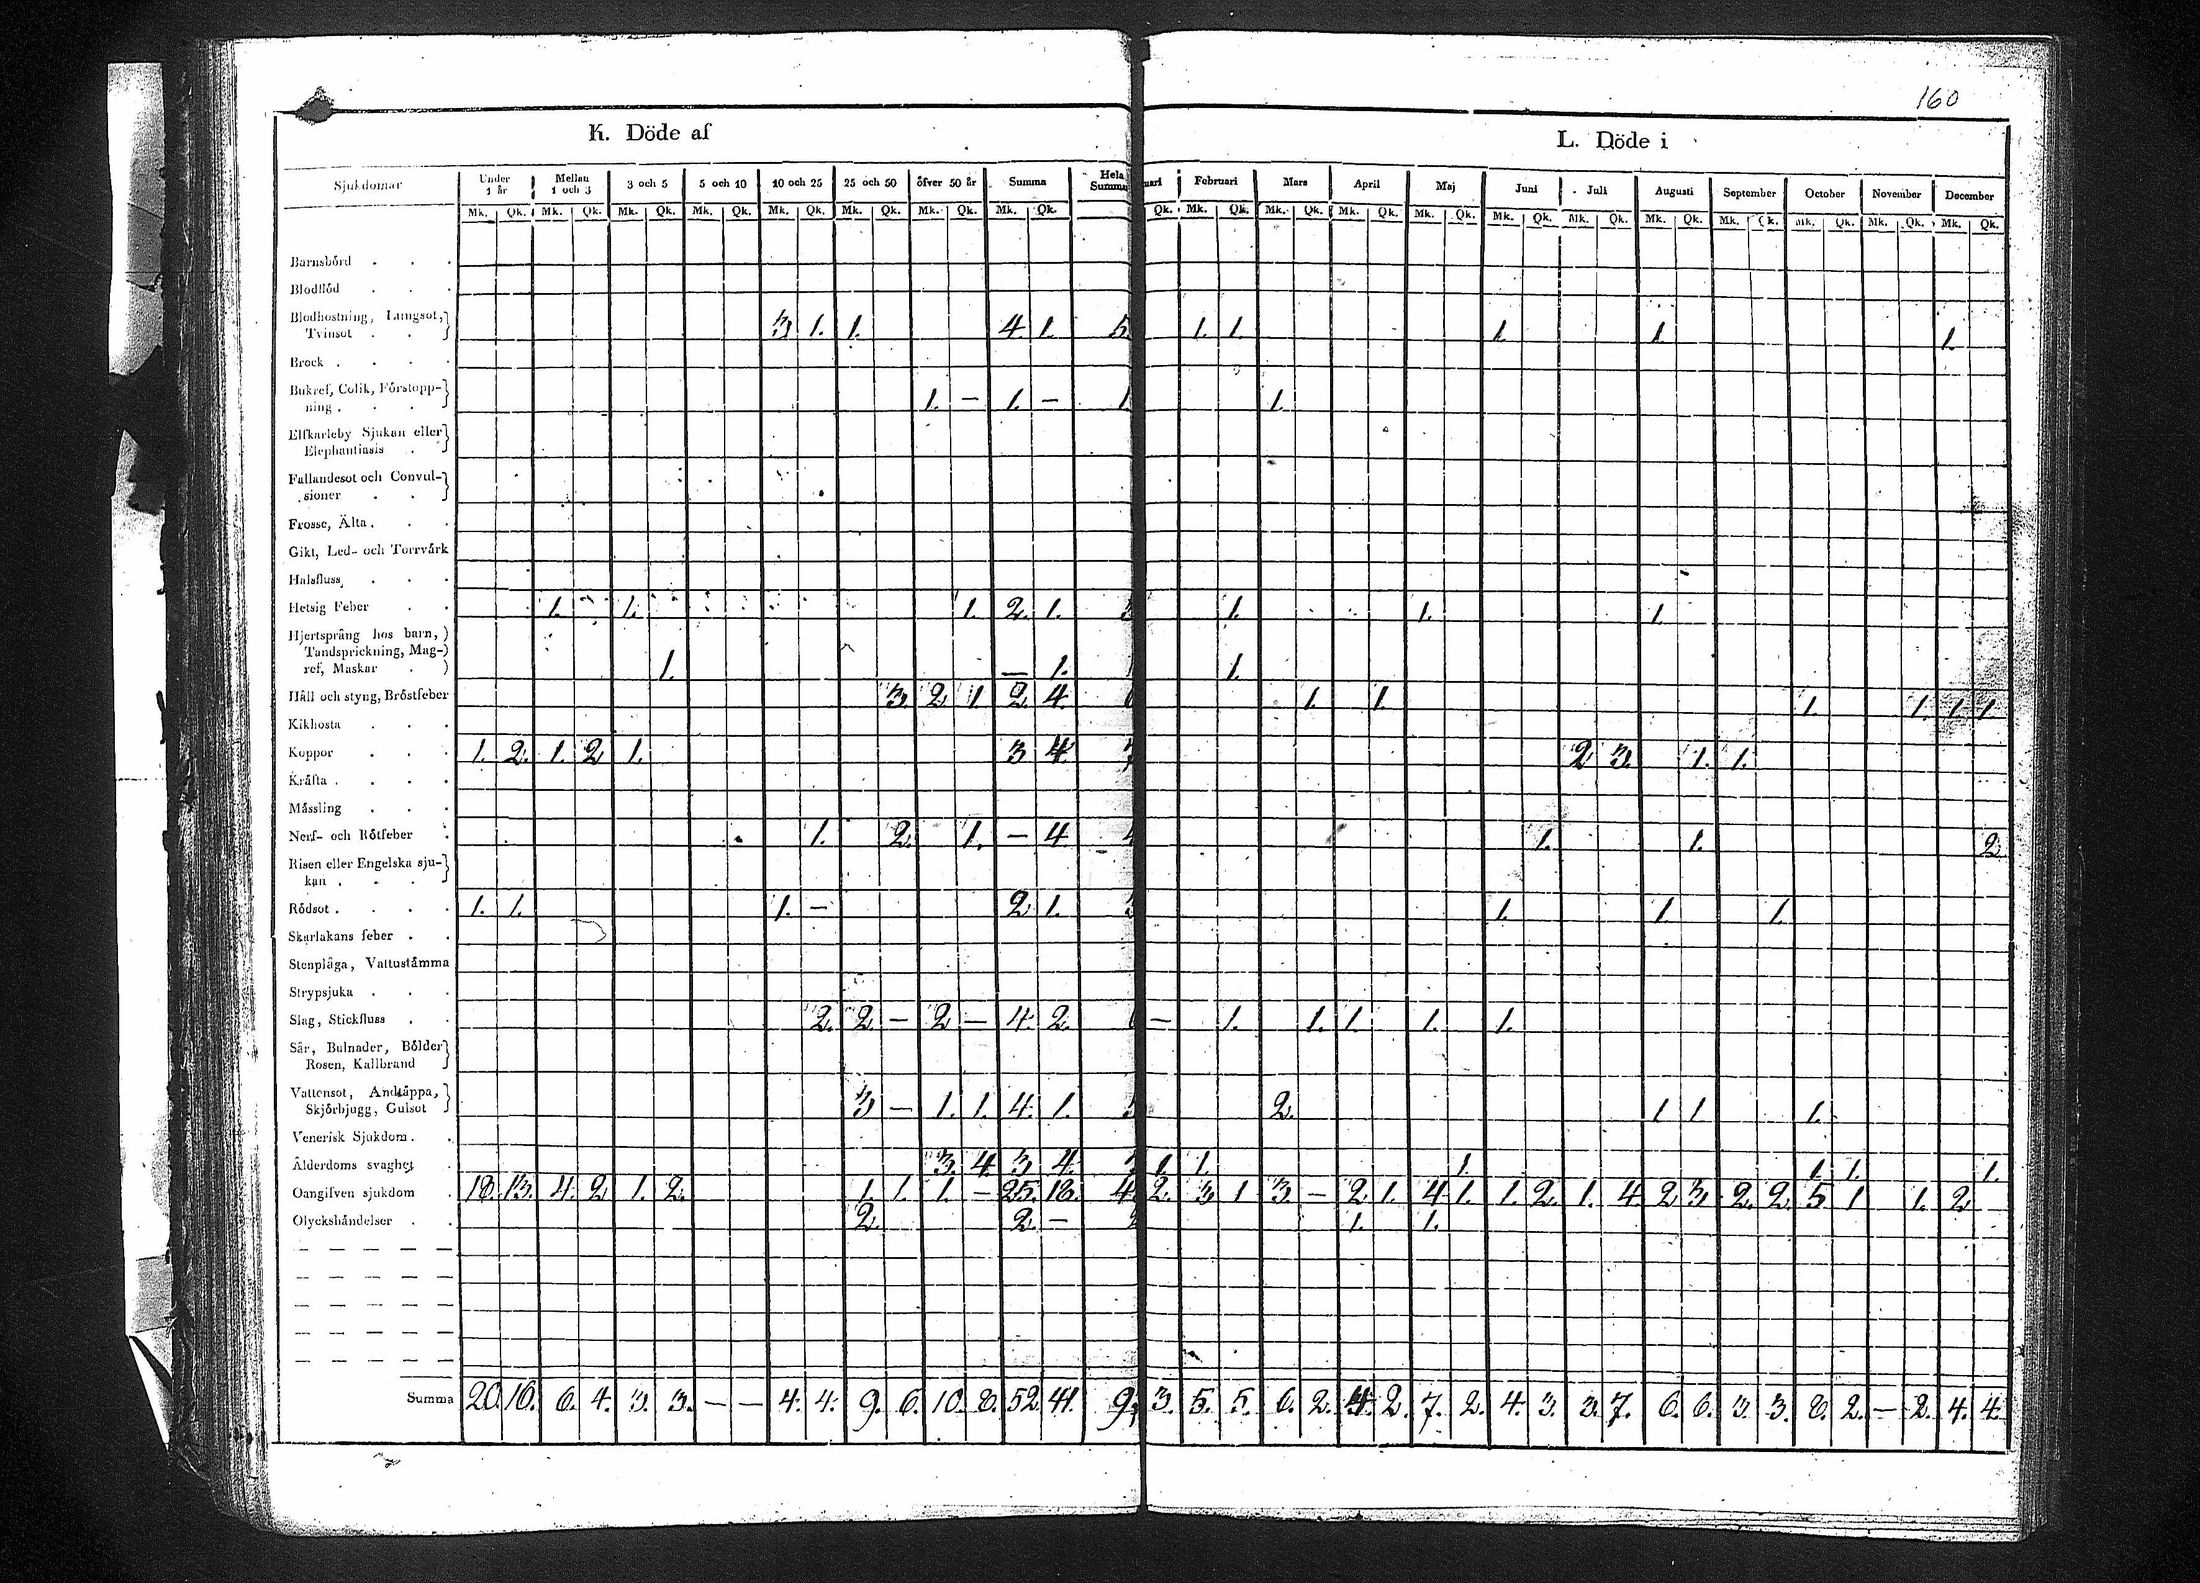 160
K. Döde af
L. Döde i
Sjukdomar Under 1 år Mellan 1 och 3 3 och 5 5 och 10 10 och 25 25 och 50 öfver 50 år Summa Hela Summa
Februari Mars April Maj Juni Juli Augusti September October November December
Mk. Qk. Mk. Qk. Mk. Qk. Mk. Qk. Mk. Qk. Mk. Qk. Mk. Qk. Mk. Qk.
Qk. Mk. Qk. Mk. Qk. Mk. Qk. Mk. Qk. Mk. Qk. Mk. Qk. Mk. Qk. Mk. Qk. Mk. Qk. Mk. Qk. Mk. Qk.
Barnsbörd . . .
Blodflöd . . .
Blodhostning, Lungsot,
Tvinsot . . 3 1. 1. 4. 1. 5. 1. 1. 1. 1. 1.
Brock . . . .
Bukref, Colik, Förstopp-
ning . . . 1. – 1. – 1. 1.
Elfkarleby Sjukan eller
Elephantiasis .
Fallandesot och Convul-
sioner . .
Frosse, Älta . . .
Gikt, Led- och Torrvårk
Halsfluss . . .
Hetsig Feber . . 1. 1. 1. 2. 1. 1. 1. 1.
Hjertsprång hos barn,
Tandsprickning, Mag-
ref, Maskar . 1. — 1. 1 1.
Håll och styng, Bröstfeber 3. 2 1. 2. 4. 1. 1. 1. 1. 1. 1.
Kikhosta . . .
Koppor . . . 1. 2. 1. 2 1. 3 4. 7 2 3. 1. 1.
Kräfta . . . .
Måssling . . .
Nerf- och Rötfeber . 1. 2. 1. – 4. 1. 1. 2.
Risen eller Engelska sju-
kan . . .
Rödsot . . . . 1. 1. 1. – 2. 1. 1. 1. 1.
Skarlakans feber . .
Stenplåga, Vattustämma
Strypsjuka . . .
Slag, Stickfluss . . 2. 2 – 2 – 4. 2. – 1. 1. 1. 1. 1.
Sår, Bulnader, Bölder
Rosen, Kallbrand
Vattensot, Andtäppa,
Skjörbjugg, Gulsot 3 – 1. 1. 4. 1. 2. 1. 1. 1.
Venerisk Sjukdom . .
Ålderdoms svaghet . 3. 4. 3 4. 1. 1. 1. 1. 1. 1.
Oangifven sjukdom . 18. 13. 4. 2. 1. 2. 1. 1. 1. – 25. 18. 4 2. 3 1 3. – 2 1. 4 1. 1. 2. 1. 4. 2 3. 2. 2. 5 1 1. 2.
Olyckshändelser . . 2. 2. – 2 1. 1.
Summa 20. 16. 6. 4. 3. 3. – – 4. 4. 9. 6. 10. 8. 52. 41. 9 3. 5. 5. 6. 2. 4. 2. 7. 2. 4. 3. 3. 7. 6. 6. 3. 3. 8. 2. – 2. 4. 4.